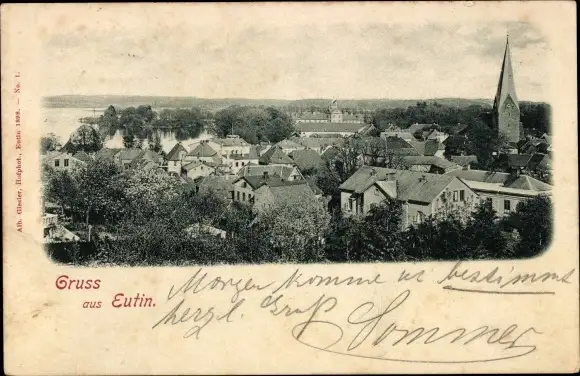 Alb. Giesler, Hofphot., Eutin 1898. — No. 1.
Gruss
aus Eutin.
Morgen komme ich bestimmt
herzl. Gruß Sommer